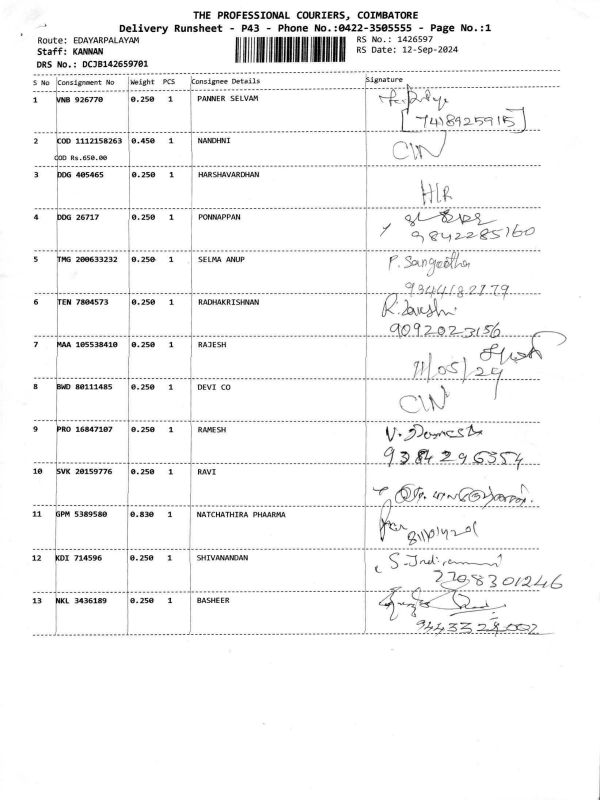 THE PROFESSIONAL COURIERS, COIMBATORE
Delivery Runsheet - P43 - Phone No.:0422-3505555 - Page No.:1
Route: EDAYARPALAYAM RS No.: 1426597
Staff: KANNAN RS Date: 12-Sep-2024
DRS No.: DCJB142659701
S No Consignment No Weight PCS Consignee Details Signature
1 VNB 926770 0.250 1 PANNER SELVAM
7418925915
2 COD 1112158263 0.450 1 NANDHNI CIN
COD Rs.650.00
3 DDG 405465 0.250 1 HARSHAVARDHAN
H/R
4 DDG 26717 0.250 1 PONNAPPAN
9842285160
5 TMG 200633232 0.250 1 SELMA ANUP P. Sangeetha
9344182779
6 TEN 7804573 0.250 1 RADHAKRISHNAN
9092023156
7 MAA 105538410 0.250 1 RAJESH
11/05/24
8 BWD 80111485 0.250 1 DEVI CO CIN
9 PRO 16847107 0.250 1 RAMESH
9384296354
10 SVK 20159776 0.250 1 RAVI
11 GPM 5389580 0.830 1 NATCHATHIRA PHAARMA
12 KDI 714596 0.250 1 SHIVANANDAN
7708301246
13 NKL 3436189 0.250 1 BASHEER